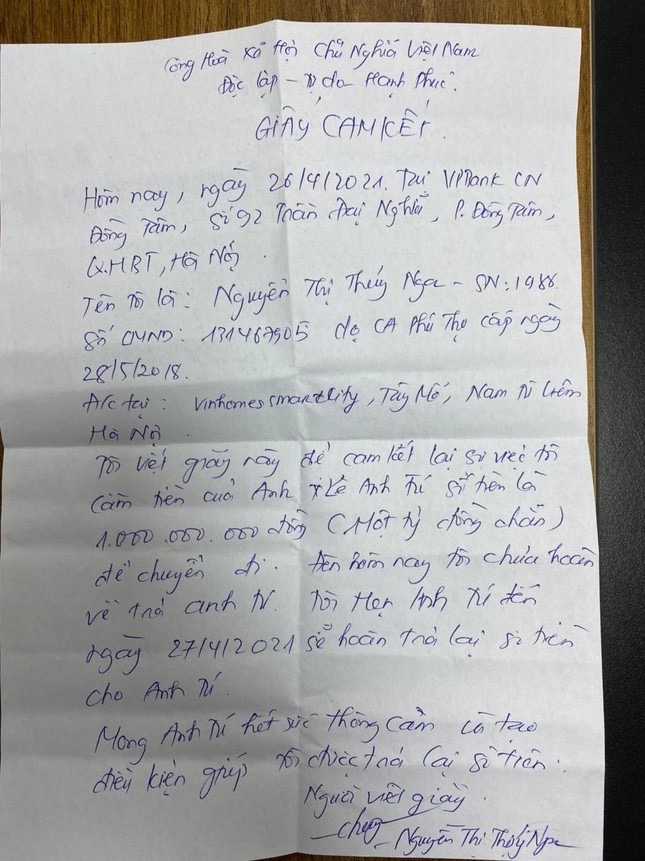 Cộng Hoà Xã Hội Chủ Nghĩa Việt Nam
Độc lập - Tự do Hạnh Phúc.
GIẤY CAM KẾT.
Hôm nay, ngày 26/4/2021. Tại VPBank CN
Đồng Tâm, Số 92 Trần Đại Nghĩa, P. Đồng Tâm,
Q.HBT, Hà Nội.
Tên Tôi là: Nguyễn Thị Thuý Nga - SN: 1986.
Số CMND: 131467905 do CA Phú Thọ cấp ngày
28/5/2018.
Đ/c tại: Vinhomes smart city, Tây Mỗ, Nam Từ Liêm
Hà Nội.
Tôi viết giấy này để cam kết lại sự việc tôi
cầm tiền của Anh Lê Anh Tú số tiền là
1.000.000.000 đồng (Một tỷ đồng chẵn)
để chuyển đi. Đến hôm nay tôi chưa hoàn
về trả anh Tú. Tôi Hẹn Anh Tú đến
ngày 27/4/2021 sẽ hoàn trả lại số tiền
cho Anh Tú.
Mong Anh Tú hết sức thông cảm và tạo
điều kiện giúp tôi được trả lại số tiền.
Người viết giấy
Nguyễn Thị Thuý Nga